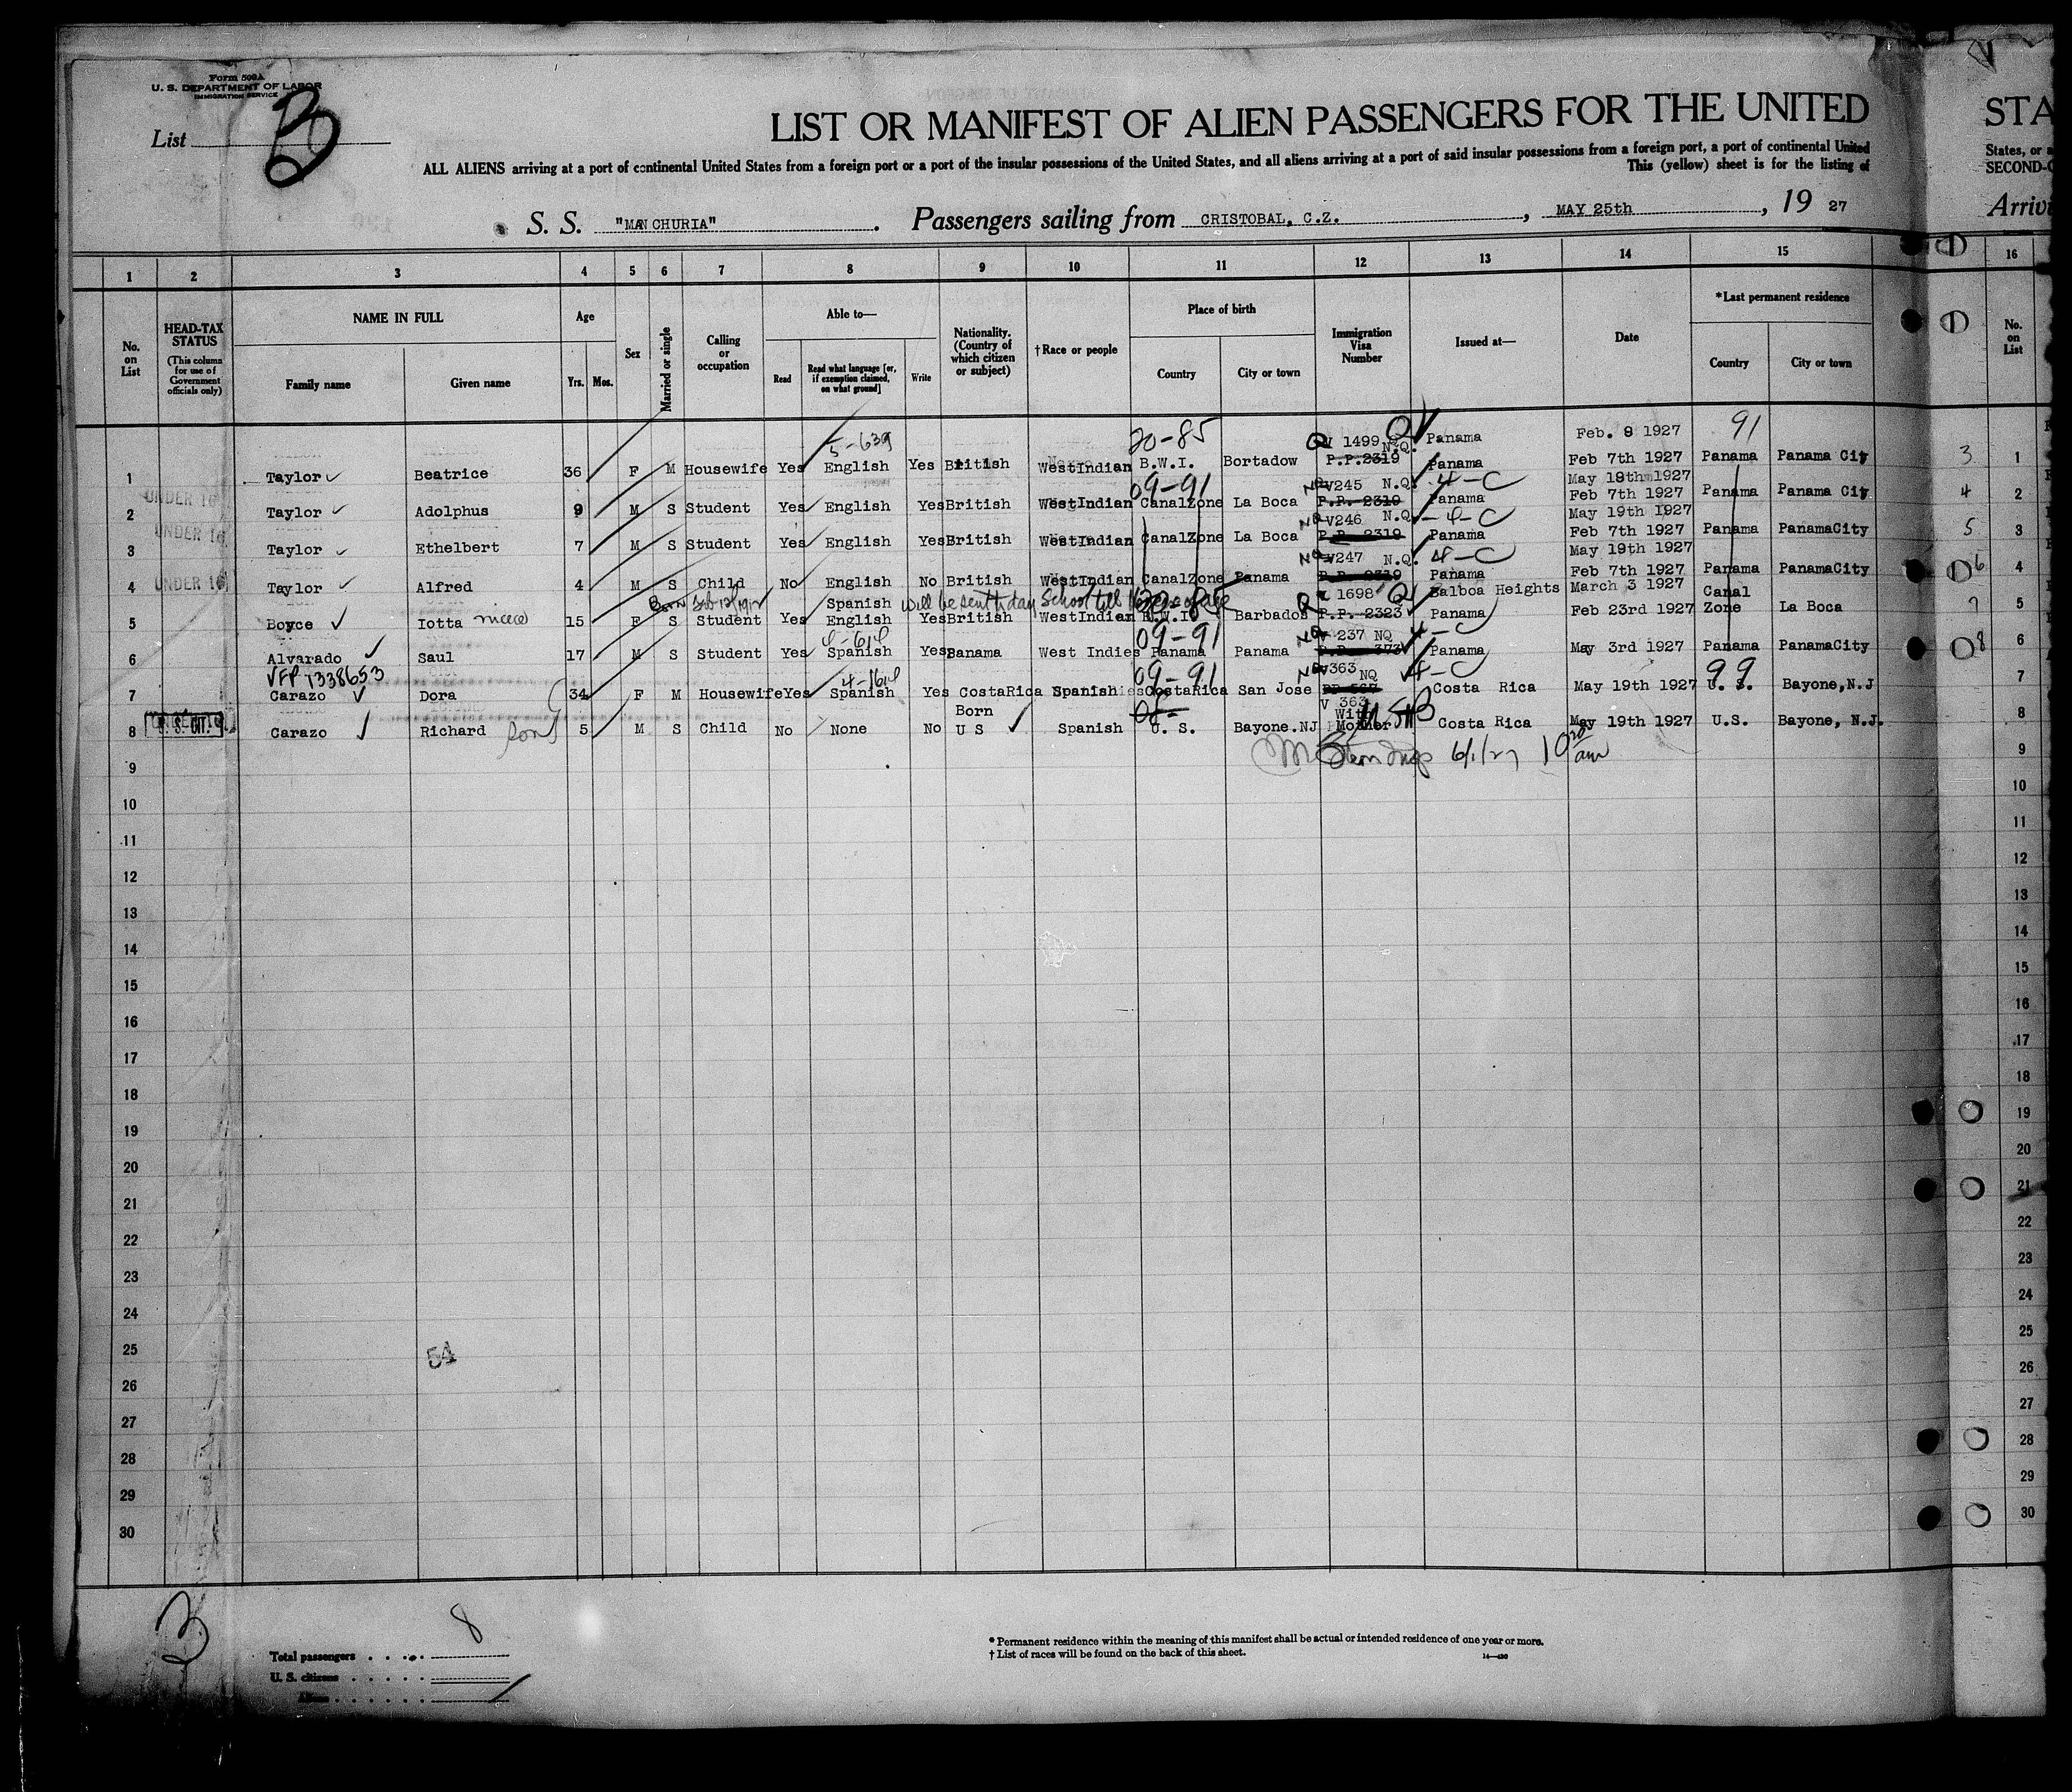 Form 500A
U. S. DEPARTMENT OF LABOR
IMMIGRATION SERVICE
List 3
LIST OR MANIFEST OF ALIEN PASSENGERS FOR THE UNITED
STA
ALL ALIENS arriving at a port of continental United States from a foreign port or a port of the insular possessions of the United States, and all aliens arriving at a port of said insular possessions from a foreign port, a port of continental United
States, or a
This (yellow) sheet is for the listing of
SECOND-C
S. S. "MANCHURIA". Passengers sailing from CRISTOBAL, C.Z., MAY 25th, 19 27
Arrivi
1 2 3 4 5 6 7 8 9 10 11 12 13 14 15 16
No. on List
HEAD-TAX STATUS
(This column for use of Government officials only)
NAME IN FULL
Family name
Given name
Age
Yrs. Mos.
Sex
Married or single
Calling or occupation
Able to—
Read
Read what language [or, if exemption claimed, on what ground]
Write
Nationality. (Country of which citizen or subject)
† Race or people
Place of birth
Country
City or town
Immigration Visa Number
Issued at—
Date
*Last permanent residence
Country
City or town
No. on List
5-639 20-85 Q V 1499 Q Panama Feb. 8 1927 91
1 Taylor Beatrice 36 F M Housewife Yes English Yes British WestIndian B.W.I. Bortadow P.P.2319 N.Q. Panama Feb 7th 1927 Panama Panama City 3 1
UNDER 16 09-91 NQ V245 N.Q. 4-C May 18th 1927
2 Taylor Adolphus 9 M S Student Yes English Yes British WestIndian CanalZone La Boca P.P. 2319 Panama Feb 7th 1927 Panama Panama City 4 2
UNDER 16 NQ V246 N.Q. 4-C May 19th 1927
3 Taylor Ethelbert 7 M S Student Yes English Yes British WestIndian CanalZone La Boca P.P. 2319 Panama Feb 7th 1927 Panama PanamaCity 5 3
NQ V247 N.Q. 4-C May 19th 1927
4 UNDER 16 Taylor Alfred 4 M S Child No English No British WestIndian CanalZone Panama P.P. 2319 Panama Feb 7th 1927 Panama PanamaCity 6 4
Born Feb 1912 Spanish Will be sent to day School till 16 yrs of age 20-85 Q 1698 Q Balboa Heights March 3 1927 Canal
5 Boyce Iotta niece 15 F S Student Yes English Yes British WestIndian B.W.I. Barbados P.P. 2323 Panama Feb 23rd 1927 Zone La Boca 7 5
4-614 09-91 NQ V 237 NQ 4-C
6 Alvarado Saul 17 M S Student Yes Spanish Yes Panama West Indies Panama Panama P.P. 373 Panama May 3rd 1927 Panama PanamaCity 8 6
VFP 1338653 4-1614 09-91 NQ V363 NQ 4-C 99
7 Carazo Dora 34 F M Housewife Yes Spanish Yes CostaRica Spanish CostaRica San Jose Costa Rica May 19th 1927 U. S. Bayone,N.J 7
U. S. CIT. Born V 363 With
8 Carazo Richard son 5 M S Child No None No U S Spanish U. S. Bayone.NJ Mother Costa Rica May 19th 1927 U.S. Bayone, N.J. 8
6/1/27 10 30 am
9 9
10 10
11 11
12 12
13 13
14 14
15 15
16 16
17 17
18 18
19 19
20 20
21 21
22 22
23 23
24 24
25 54 25
26 26
27 27
28 28
29 29
30 30
3
8
Total passengers
U. S. citizens
Aliens
* Permanent residence within the meaning of this manifest shall be actual or intended residence of one year or more.
† List of races will be found on the back of this sheet.